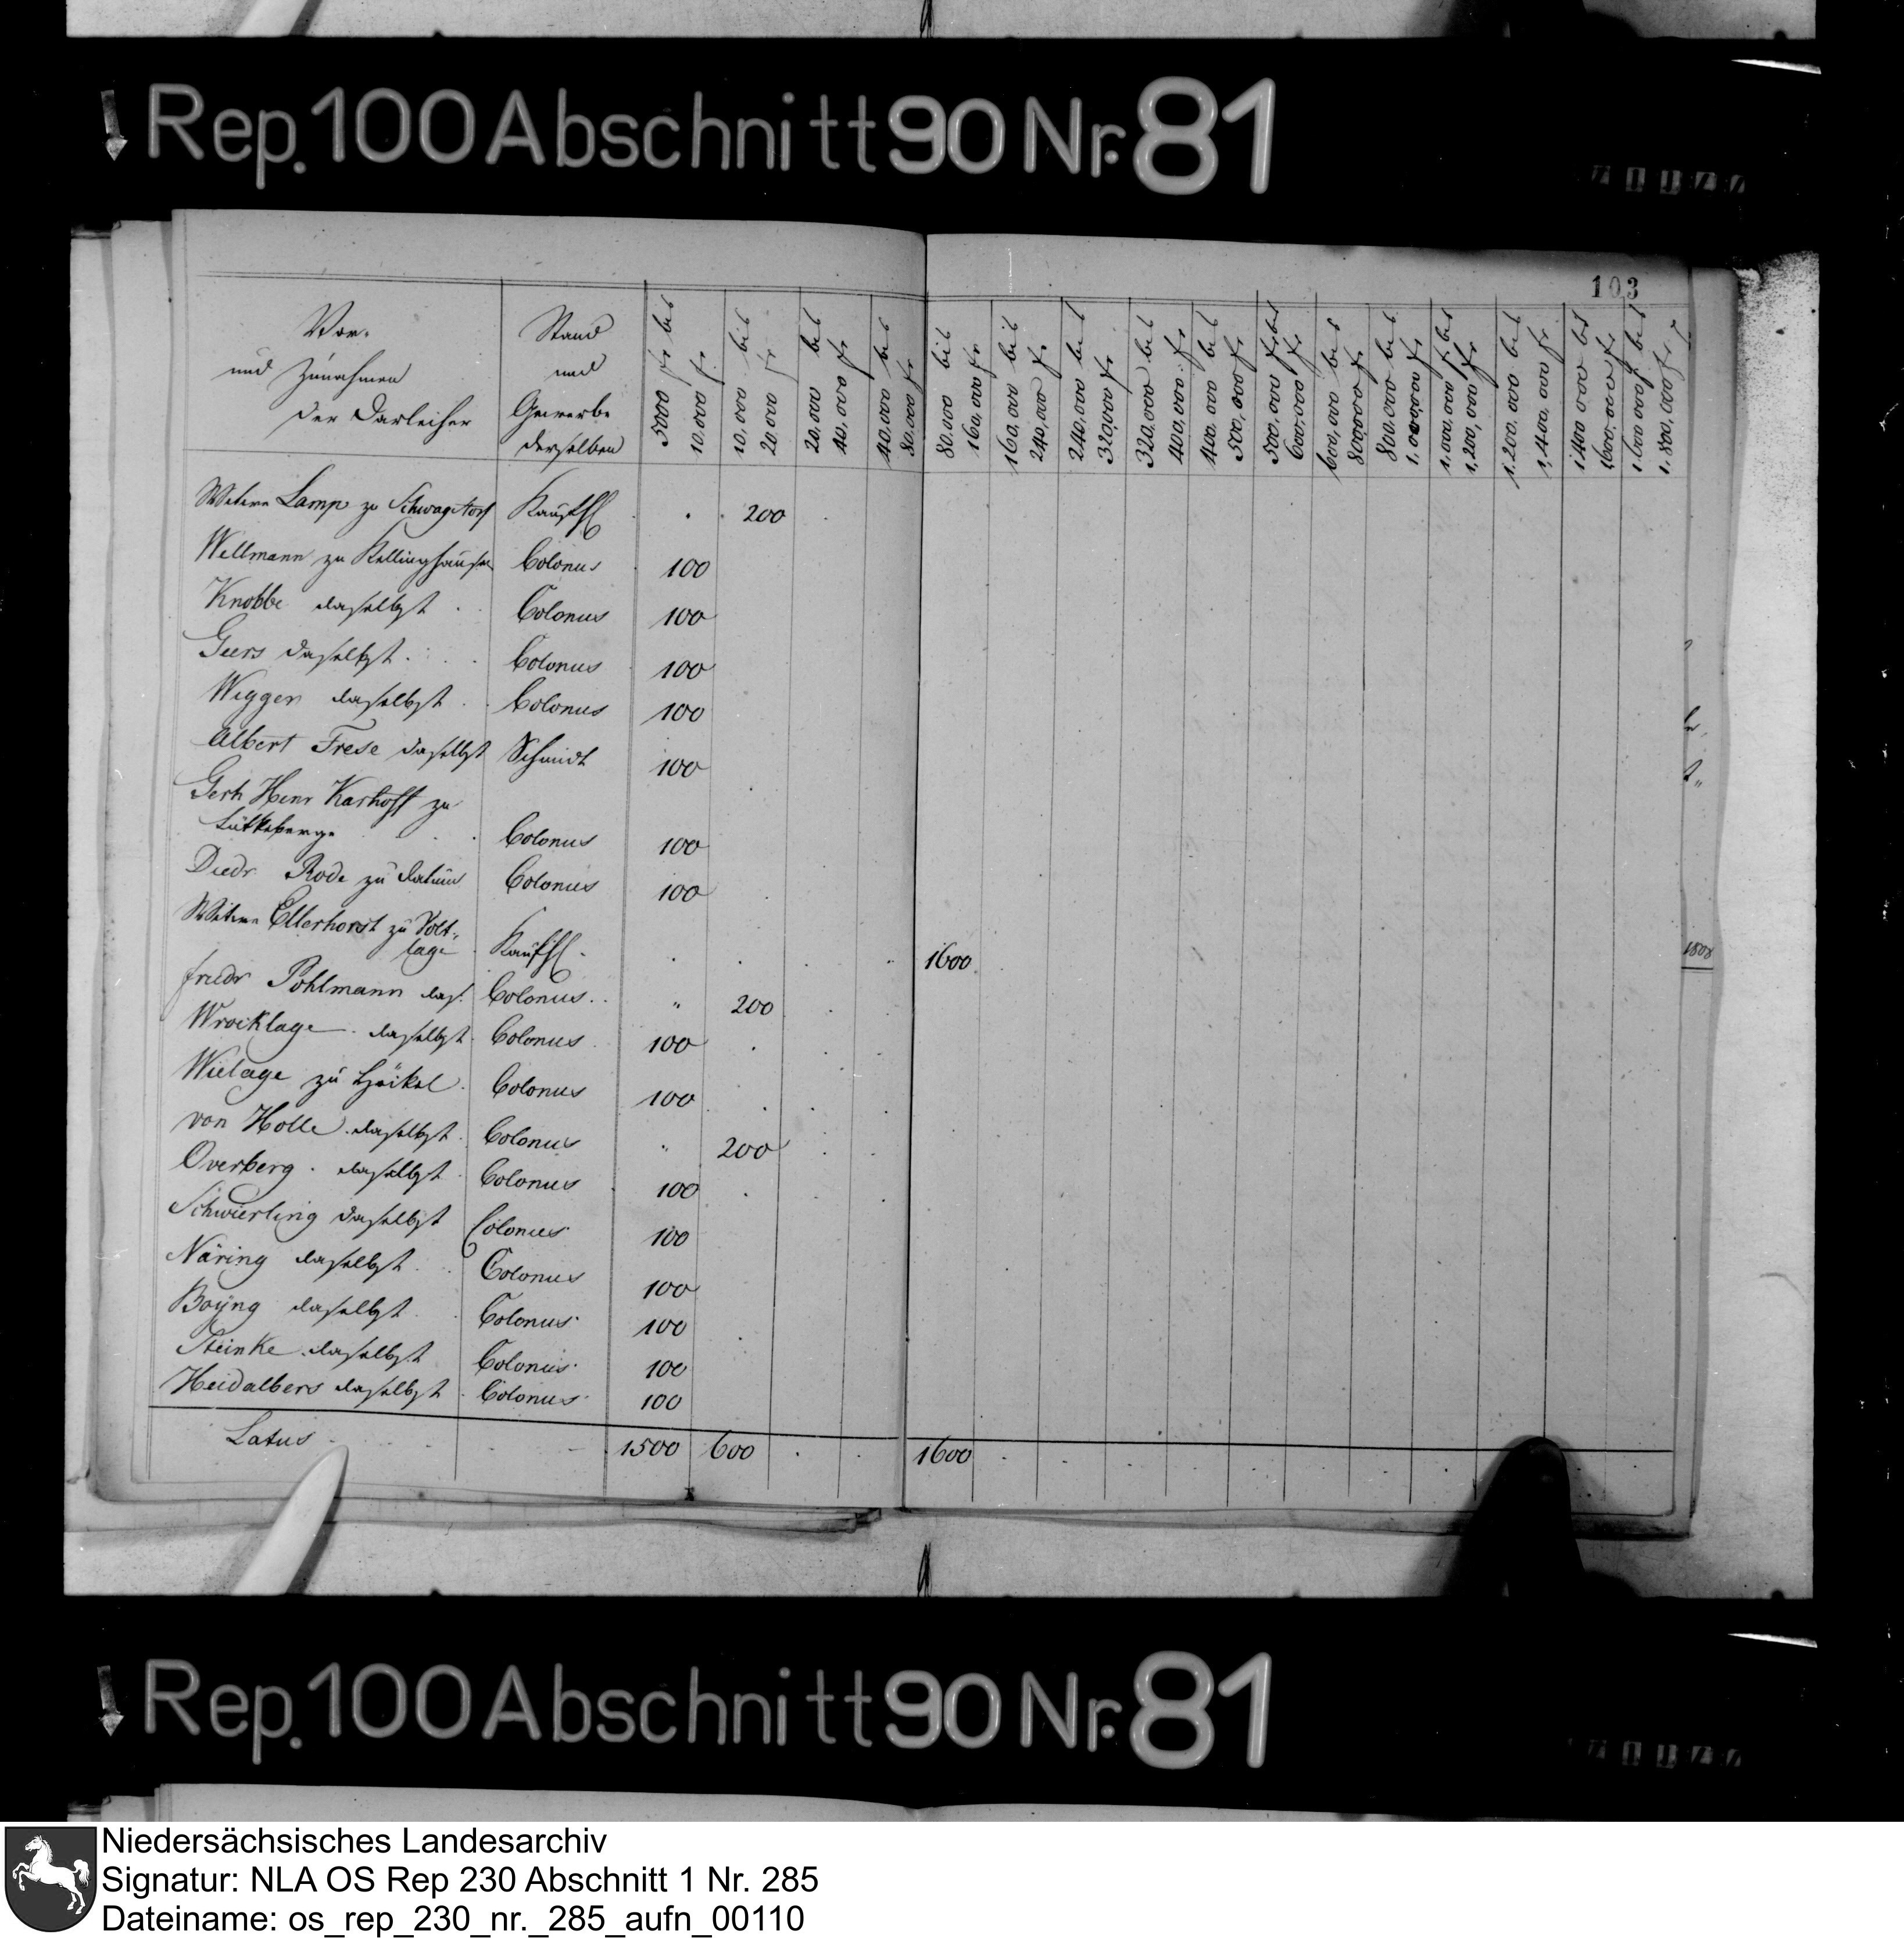 Rep. 100 Abschnitt 90 Nr. 81
103
Vor-
und Zunahmen
der Darleiher
Stand
und
Gewerbe
derselben
5000 fr bis
10,000 fr.
10,000 bis
20,000 fr
20,000 bis
40,000 fr
40,000 bis
80,000 fr.
80,000 bis
160,000 fr
160,000 bis
240,000 fr.
240,000 bis
320,000 fr
320,000 bis
400,000 fr
400,000 bis
500,000 fr
500,000 fr bis
600,000 fr
600,000 bis
800,000 fr
800,000 bis
1,000,000 fr
1,000,000 fr bis
1,200,000 fr
1,200,000 bis
1,400,000 fr
1,400,000 bis
1,600,000 fr
1,600,000 fr bis
1,800,000 fr
Witwe Lamp zu Schwagstorf Kaufhl . 200
Wellmann zu Kellinghausen Colonus 100
Knobbe daselbst Colonus 100
Geers daselbst Colonus 100
Weggen daselbst Colonus 100
Albert Frese daselbst Schmidt 100
Gerh Henr Karhoff zu
Lütkeberge Colonus 100
Diedr Rode zu Colonus 100
Witwe Ellerhorst zu Volt-
lage Kaufhl. 1600
friedr Pohlmann das. Colonus " 200
Wrocklage daselbst Colonus 100
Wielage zu Höckel Colonus 100
von Holle daselbst Colonus " 200
Overberg daselbst Colonus 100
Schwierling daselbst Colonus 100
Näring daselbst Colonus 100
Boÿng daselbst Colonus 100
Steinke daselbst Colonus 100
Heidalbers daselbst Colonus 100
Latus 1500 600 1600
Rep. 100 Abschnitt 90 Nr. 81
Niedersächsisches Landesarchiv
Signatur: NLA OS Rep 230 Abschnitt 1 Nr. 285
Dateiname: os_rep_230_nr._285_aufn_00110